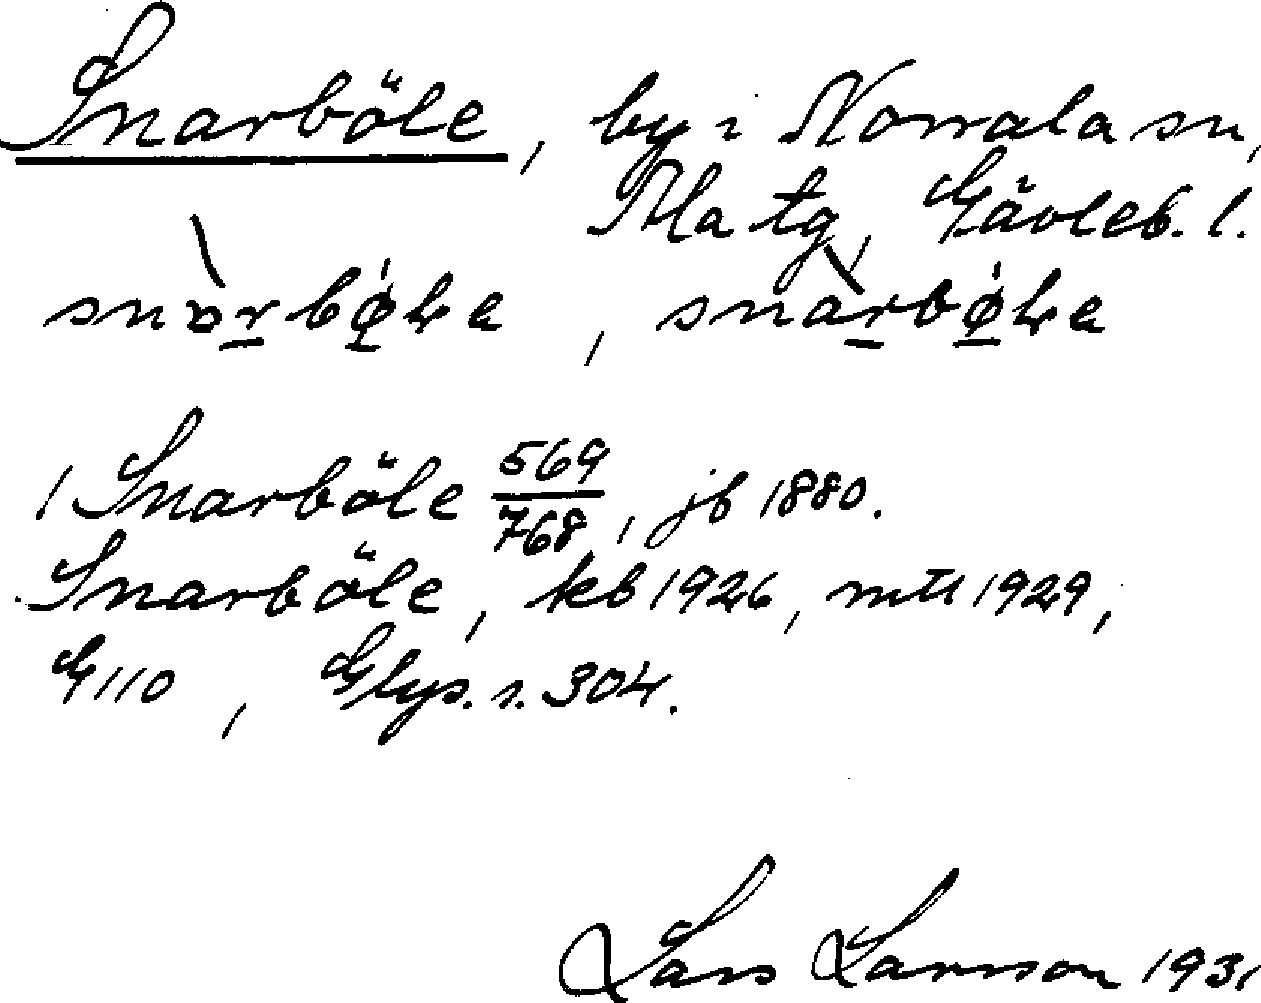 Snarböle, by i Norrala sn,
Ala tg, Gävleb. l.
1 Snarböle 569/768, jb 1880.
Snarböle, kb 1926, mtl 1929,
G 110, Glys. s. 304.
Lars Larsson 1931